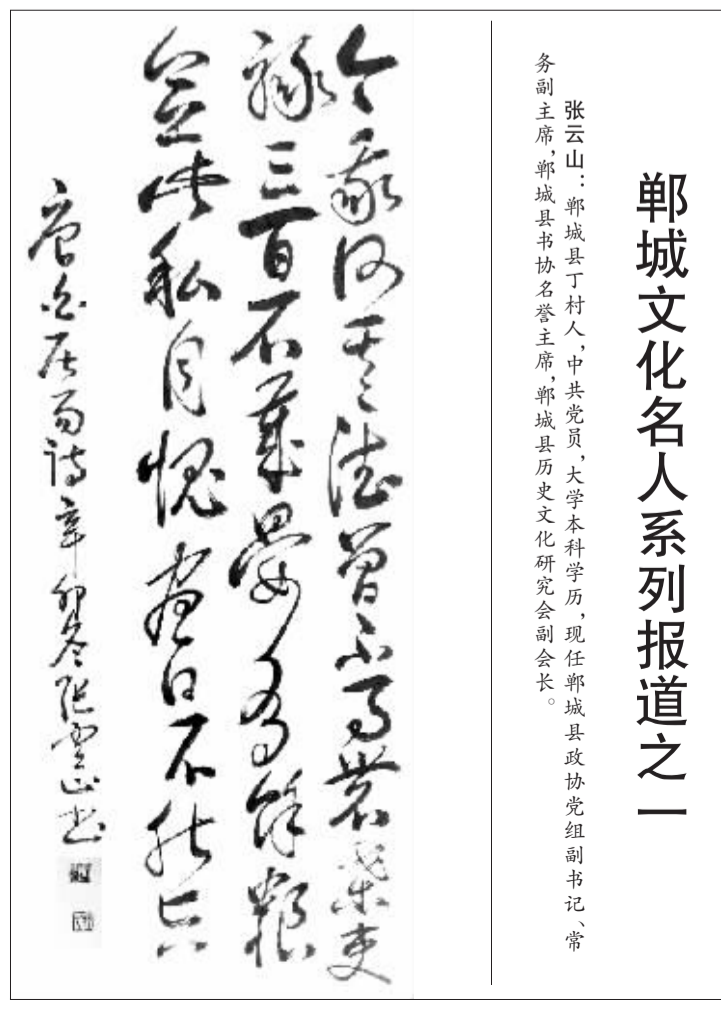 郸城文化名人系列报道之一
张云山：郸城县丁村人，中共党员，大学本科学历，现任郸城县政协党组副书记、常
务副主席，郸城县书协名誉主席，郸城县历史文化研究会副会长。
今我何其德曾不事農桑吏
祿三百石歲晏有餘糧
念此私自愧盡日不能忘
唐白居易詩辛卯冬張雲山书